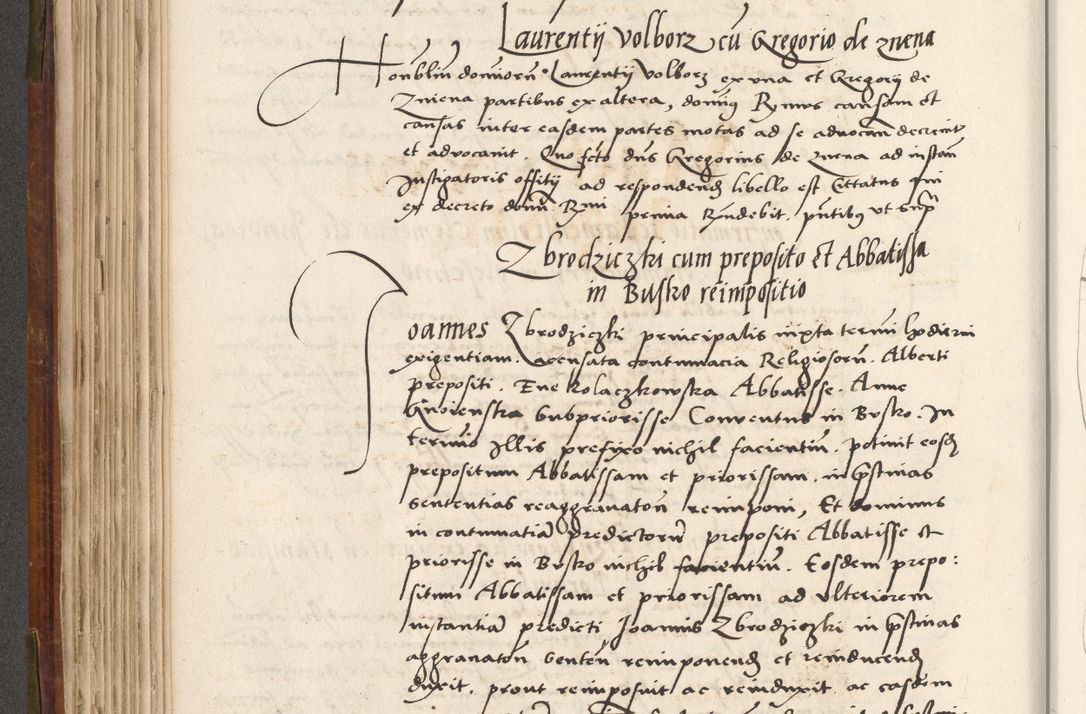 Laurentij Volborz cū Gregorio de znena
Honbliū dominorū Laurentij Volborz ex vna et Gregorij de
Zniena partibus ex altera, domin9 Rymus causam et
causas inter easdem partes motas ad se aduocan decreuit
et advocauit. Quo fcto dns Gregorius de znena ad instan
Instigatoris offitij ad respondend libello est Cittatus qui
ex decreto domi Rmi prima Rndebit. pntibus vt supra
Zbrodziczki cum preposito Et Abbatissa
in Busko reimpositio
Joannes Zbrodziczki principalis iuxta termi hodierni
exigentiam. Accusata contumacia Religiosorū. Alberti
prepositi. Eue Kolaczkowska Abbatisse. Anne
Gnoienska Subpriorisse Conventus in Busko. In
termio Illis prefixo nichil facientiū. petiuit eosd
prepositum Abbatissam et priorissam. in pristinas
sententias reaggrauaton reimponi, Et dominus
in contumatiā predictorū prepositi Abbatisse et
priorisse in Busko nichil facientiū. Eosdem prepo:
situm Abbatissam et priorissam ad vlteriorem
instantiā predicti Joannis Zbrodziczki in pristinas
aggrauaton senten reimponend et reinducend
duxit. prout reimposuit ac reinduxit. ac easdem